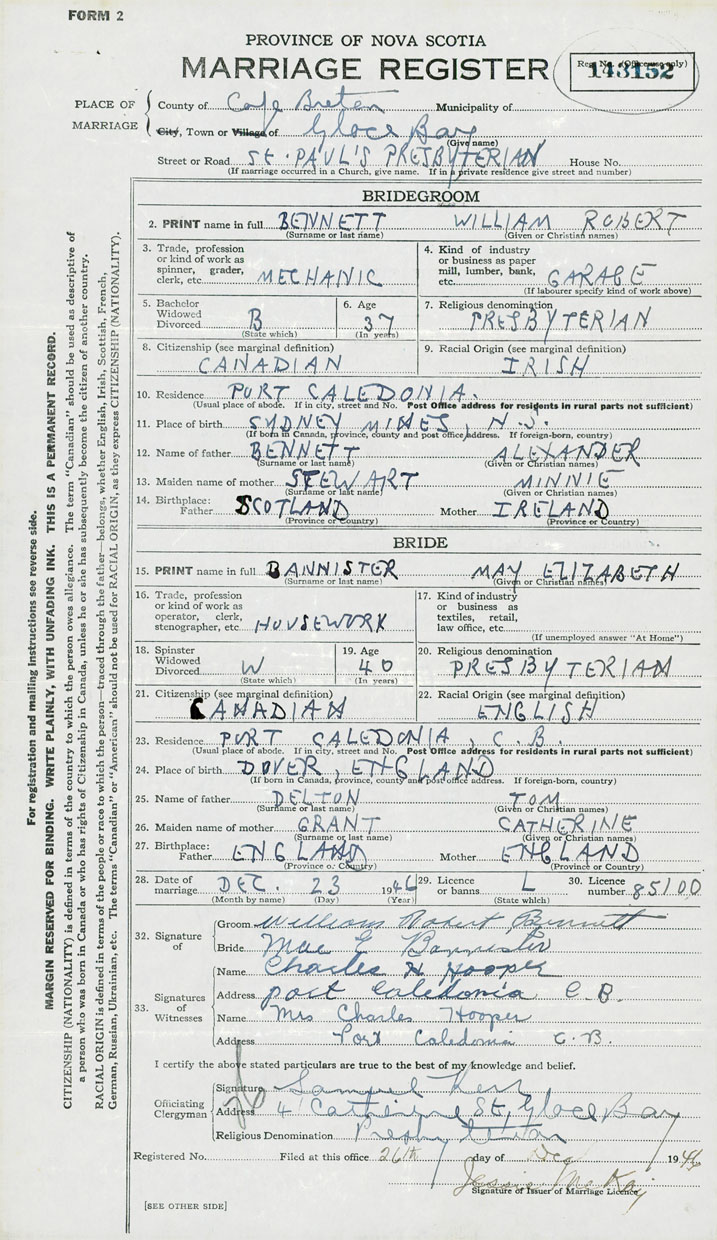 FORM 2
PROVINCE OF NOVA SCOTIA
MARRIAGE REGISTER
Reg. No. (Office use only)
143152
PLACE OF MARRIAGE
County of Cape Breton Municipality of
City, Town or Village of Glace Bay
(Give name)
Street or Road ST. PAUL'S PRESBYTERIAN House No.
(If marriage occurred in a Church, give name. If in a private residence give street and number)
BRIDEGROOM
2. PRINT name in full BENNETT WILLIAM ROBERT
(Surname or last name) (Given or Christian names)
3. Trade, profession or kind of work as spinner, grader, clerk, etc. MECHANIC
4. Kind of industry or business as paper mill, lumber, bank, etc. GARAGE
(If labourer specify kind of work above)
5. Bachelor Widowed Divorced B
(State which)
6. Age 37
(In years)
7. Religious denomination
PRESBYTERIAN
8. Citizenship (see marginal definition)
CANADIAN
9. Racial Origin (see marginal definition)
IRISH
10. Residence PORT CALEDONIA.
(Usual place of abode. If in city, street and No. Post Office address for residents in rural parts not sufficient)
11. Place of birth SYDNEY MINES, N.S.
(If born in Canada, province, county and post office address. If foreign-born, country)
12. Name of father BENNETT ALEXANDER
(Surname or last name) (Given or Christian names)
13. Maiden name of mother STEWART MINNIE
(Surname or last name) (Given or Christian names)
14. Birthplace: Father SCOTLAND Mother IRELAND
(Province or Country) (Province or Country)
BRIDE
15. PRINT name in full BANNISTER MAY ELIZABETH
(Surname or last name) (Given or Christian names)
16. Trade, profession or kind of work as operator, clerk, stenographer, etc. HOUSEWORK
17. Kind of industry or business as textiles, retail, law office, etc.
(If unemployed answer "At Home")
18. Spinster Widowed Divorced W
(State which)
19. Age 40
(In years)
20. Religious denomination
PRESBYTERIAN
21. Citizenship (see marginal definition)
CANADIAN
22. Racial Origin (see marginal definition)
ENGLISH
23. Residence PORT CALEDONIA, C.B.
(Usual place of abode. If in city, street and No. Post Office address for residents in rural parts not sufficient)
24. Place of birth DOVER ENGLAND
(If born in Canada, province, county and post office address. If foreign-born, country)
25. Name of father DELTON TOM
(Surname or last name) (Given or Christian names)
26. Maiden name of mother GRANT CATHERINE
(Surname or last name) (Given or Christian names)
27. Birthplace: Father ENGLAND Mother ENGLAND
(Province or Country) (Province or Country)
28. Date of marriage DEC. 23 1946
(Month by name) (Day) (Year)
29. Licence or banns L
(State which)
30. Licence number 85100
32. Signature of
Groom William Robert Bennett
Bride Mae E Bannister
33. Signatures of Witnesses
Name Charles H Hooper
Address port Caledonia C.B.
Name Mrs Charles Hooper
Address Port Caledonia C.B.
I certify the above stated particulars are true to the best of my knowledge and belief.
Officiating Clergyman
Signature Samuel Kerr
Address 4 Catherine St, Glace Bay
Religious Denomination Presbyterian
Registered No. Filed at this office 26th day of Dec 1946
Jessie McKay
Signature of Issuer of Marriage Licence
[SEE OTHER SIDE]
For registration and mailing instructions see reverse side.
MARGIN RESERVED FOR BINDING. WRITE PLAINLY, WITH UNFADING INK. THIS IS A PERMANENT RECORD.
CITIZENSHIP (NATIONALITY) is defined in terms of the country to which the person owes allegiance. The term "Canadian" should be used as descriptive of
a person who was born in Canada or who has rights of Citizenship in Canada, unless he or she has subsequently become the citizen of another country.
RACIAL ORIGIN is defined in terms of the people or race to which the person—traced through the father—belongs, whether English, Irish, Scottish, French,
German, Russian, Ukrainian, etc. The terms "Canadian" or "American" should not be used for RACIAL ORIGIN, as they express CITIZENSHIP (NATIONALITY).